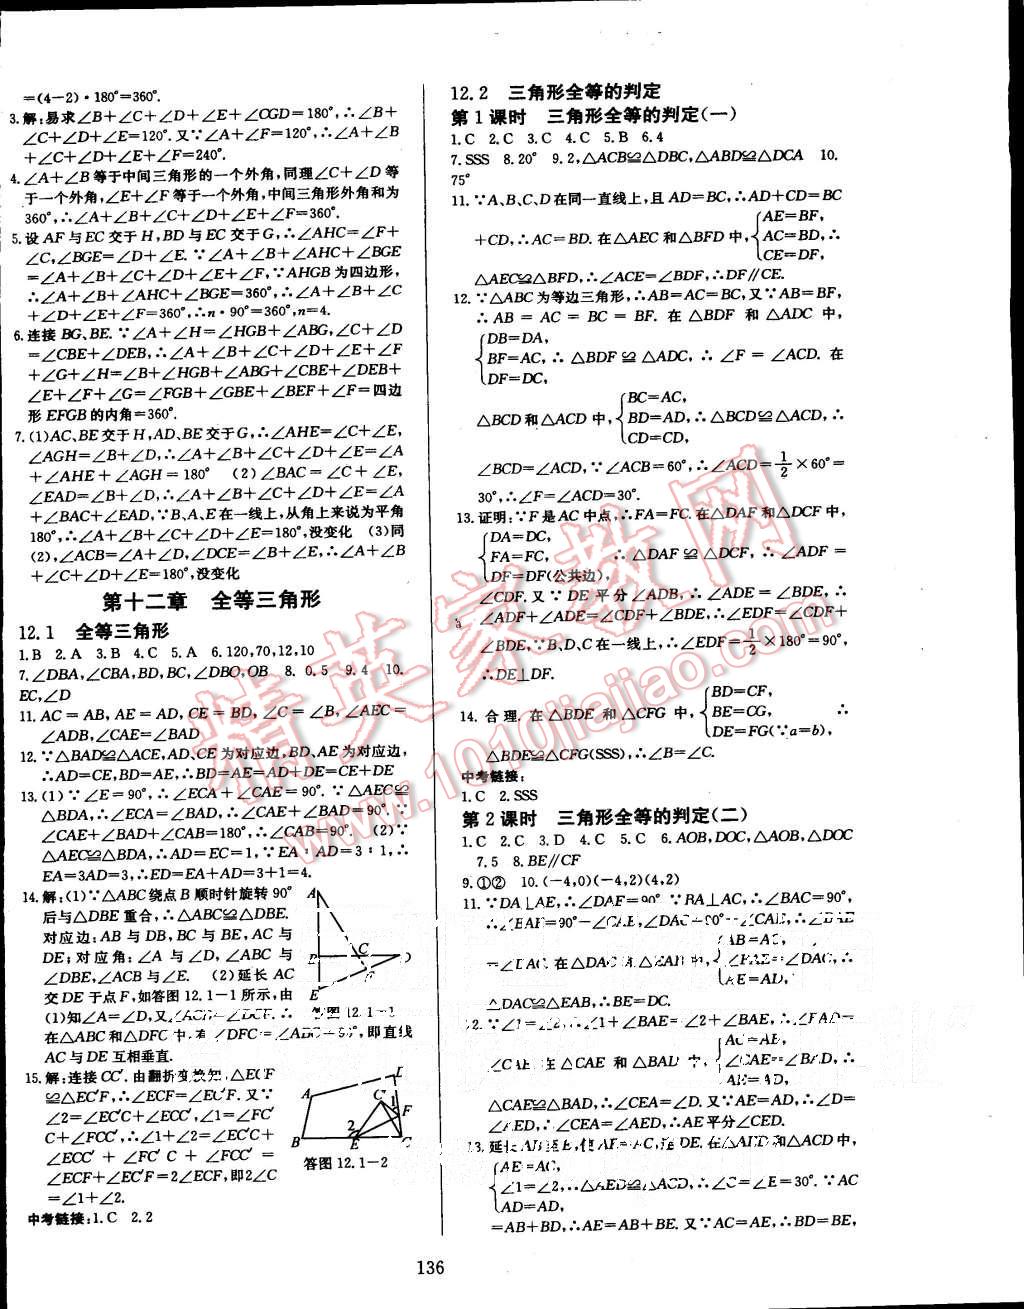 =(4-2)·180°=360°.
3.解:易求∠B+∠C+∠D+∠E+∠CGD=180°,∴∠B+
∠C+∠D+∠E=120°.又∵∠A+∠F=120°,∴∠A+∠B
+∠C+∠D+∠E+∠F=240°.
4.∠A+∠B等于中间三角形的一个外角,同理∠C+∠D等
于一个外角,∠E+∠F等于一个外角,中间三角形外角和为
360°,∴∠A+∠B+∠C+∠D+∠E+∠F=360°.
5.设AF与EC交于H,BD与EC交于G,∴∠AHC=∠F+
∠C,∠BGE=∠D+∠E.∵∠A+∠B+∠AHC+∠BGE
=∠A+∠B+∠C+∠D+∠E+∠F,∵AHGB为四边形,
∴∠A+∠B+∠AHC+∠BGE=360°,∴∠A+∠B+∠C
+∠D+∠E+∠F=360°,∴n·90°=360°,n=4.
6.连接BG,BE.∵∠A+∠H=∠HGB+∠ABG,∠C+∠D
=∠CBE+∠DEB,∴∠A+∠B+∠C+∠D+∠E+∠F
+∠G+∠H=∠B+∠HGB+∠ABG+∠CBE+∠DEB+
∠E+∠F+∠G=∠FGB+∠GBE+∠BEF+∠F=四边
形EFGB的内角=360°.
7.(1)AC、BE交于H,AD、BE交于G,∴∠AHE=∠C+∠E,
∠AGH=∠B+∠D,∴∠A+∠B+∠C+∠D+∠E=∠A
+∠AHE+∠AGH=180° (2)∠BAC=∠C+∠E,
∠EAD=∠B+∠D,∴∠A+∠B+∠C+∠D+∠E=∠A
+∠BAC+∠EAD,∵B、A、E在一线上,从角上来说为平角
180°,∴∠A+∠B+∠C+∠D+∠E=180°,没变化 (3)同
(2),∠ACB=∠A+∠D,∠DCE=∠B+∠E,∴∠A+∠B
+∠C+∠D+∠E=180°,没变化
第十二章 全等三角形
12.1 全等三角形
1.B 2.A 3.B 4.C 5.A 6.120,70,12,10
7.∠DBA,∠CBA,BD,BC,∠DBO,OB 8.0.5 9.4 10.
EC,∠D
11.AC=AB,AE=AD,CE=BD,∠C=∠B,∠AEC=
∠ADB,∠CAE=∠BAD
12.∵△BAD≌△ACE,AD、CE为对应边,BD、AE为对应边,
∴AD=CE,BD=AE,∴BD=AE=AD+DE=CE+DE
13.(1)∵∠E=90°,∴∠ECA+∠CAE=90°.∵△AEC≌
△BDA,∴∠ECA=∠BAD,∴∠CAE+∠BAD=90°.∵
∠CAE+∠BAD+∠CAB=180°,∴∠CAB=90°. (2)∵
△AEC≌△BDA,∴AD=EC=1,∵EA∶AD=3∶1,∴
EA=3AD=3,∴ED=EA+AD=3+1=4.
14.解:(1)∵△ABC绕点B顺时针旋转90°
后与△DBE重合,∴△ABC≌△DBE.
对应边:AB与DB,BC与BE,AC与
DE;对应角:∠A与∠D,∠ABC与
∠DBE,∠ACB与∠E. (2)延长AC
交DE于点F,如答图12.1-1所示,由
(1)知∠A=∠D,又∠ACB=∠DCF,∴
在△ABC和△DFC中,有∠DFC=∠ABC=90°,即直线
AC与DE互相垂直.
A
C
B
D
F
E
答图12.1-1
15.解:连接CC′.由翻折变换知,△ECF
≌△EC′F,∴∠ECF=∠EC′F.又∵
∠2=∠EC′C+∠ECC′,∠1=∠FC′
C+∠FCC′,∴∠1+∠2=∠EC′C+
∠ECC′+∠FC′C+∠FCC′=
∠ECF+∠EC′F=2∠ECF,即2∠C
=∠1+∠2.
A
C′
1
F
2
B
E
C
答图12.1-2
中考链接:1.C 2.2
12.2 三角形全等的判定
第1课时 三角形全等的判定(一)
1.C 2.C 3.C 4.C 5.B 6.4
7.SSS 8.20° 9.2,△ACB≌△DBC,△ABD≌△DCA 10.
75°
11.∵A、B、C、D在同一直线上,且AD=BC,∴AD+CD=BC
+CD,∴AC=BD.在△AEC和△BFD中,{AE=BF,
AC=BD,∴
CE=DF,
△AEC≌△BFD,∴∠ACE=∠BDF,∴DF∥CE.
12.∵△ABC为等边三角形,∴AB=AC=BC,又∵AB=BF,
∴AB=AC=BC=BF.在△BDF和△ADC中,
{DB=DA,
BF=AC,∴△BDF≌△ADC,∴∠F=∠ACD.在
DF=DC,
△BCD和△ACD中,{BC=AC,
BD=AD,∴△BCD≌△ACD,∴
CD=CD,
∠BCD=∠ACD,∵∠ACB=60°,∴∠ACD=1/2×60°=
30°,∴∠F=∠ACD=30°.
13.证明:∵F是AC中点,∴FA=FC.在△DAF和△DCF中,
{DA=DC,
FA=FC, ∴△DAF≌△DCF,∴∠ADF=
DF=DF(公共边),
∠CDF.又∵DE平分∠ADB,∴∠ADE=∠BDE,∴
∠ADF+∠ADE=∠CDF+∠BDE,∴∠EDF=∠CDF+
∠BDE,∵B、D、C在一线上,∴∠EDF=1/2×180°=90°,
∴DE⊥DF.
14.合理.在△BDE和△CFG中,{BD=CF,
BE=CG, ∴
DE=FG(∵a=b),
△BDE≌△CFG(SSS),∴∠B=∠C.
中考链接:
1.C 2.SSS
第2课时 三角形全等的判定(二)
1.C 2.C 3.D 4.C 5.C 6.AOB,DOC,△AOB,△DOC
7.5 8.BE∥CF
9.①② 10.(-4,0)(-4,2)(4,2)
11.∵DA⊥AE,∴∠DAE=90°.∵BA⊥AC,∴∠BAC=90°,
∴∠EAB=90°-∠CAE,∠DAC=90°-∠CAE,∴∠BAE
=∠DAC.在△DAC和△EAB中,{AB=AC,
∠BAE=∠DAC,∴
AE=AD,
△DAC≌△EAB,∴BE=DC.
12.∵∠1=∠2,∴∠1+∠BAE=∠2+∠BAE,∴∠BAD=
∠CAE.在△CAE和△BAD中,{AC=AB,
∠CAE=∠BAD,∴
AE=AD,
△CAE≌△BAD,∴∠CEA=∠D.又∵AE=AD,∴∠D=
∠AED,∴∠CEA=∠AED,∴AE平分∠CED.
13.延长AB至E,使AE=AC,连DE.在△AED和△ACD中,
{AE=AC,
∠1=∠2,∴△AED≌△ACD,∴∠C=∠E=30°.∵AC
AD=AD,
=AB+BD,∴AE=AB+BD.又∵AC=AE,∴BD=BE,
136
精英家教网
www.1010jiajiao.com